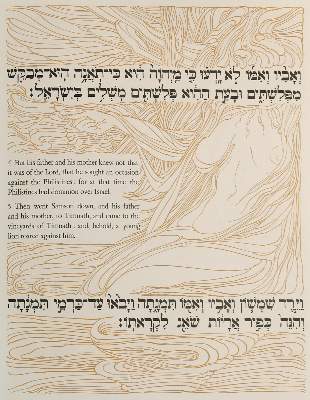 וְאָבִיו וְאִמּוֹ לֹא יָדְעוּ כִּי מֵיְהוָה הִיא כִּי־תֹאֲנָה הוּא־מְבַקֵּשׁ
מִפְּלִשְׁתִּים וּבָעֵת הַהִיא פְּלִשְׁתִּים מֹשְׁלִים בְּיִשְׂרָאֵל:
4 But his father and his mother knew not that
it was of the Lord, that he sought an occasion
against the Philistines: for at that time the
Philistines had dominion over Israel.
5 Then went Samson down, and his father
and his mother, to Timnath, and came to the
vineyards of Timnath: and, behold, a young
lion roared against him.
וַיֵּרֶד שִׁמְשׁוֹן וְאָבִיו וְאִמּוֹ תִּמְנָתָה וַיָּבֹאוּ עַד־כַּרְמֵי תִמְנָתָה
וְהִנֵּה כְּפִיר אֲרָיוֹת שֹׁאֵג לִקְרָאתוֹ: